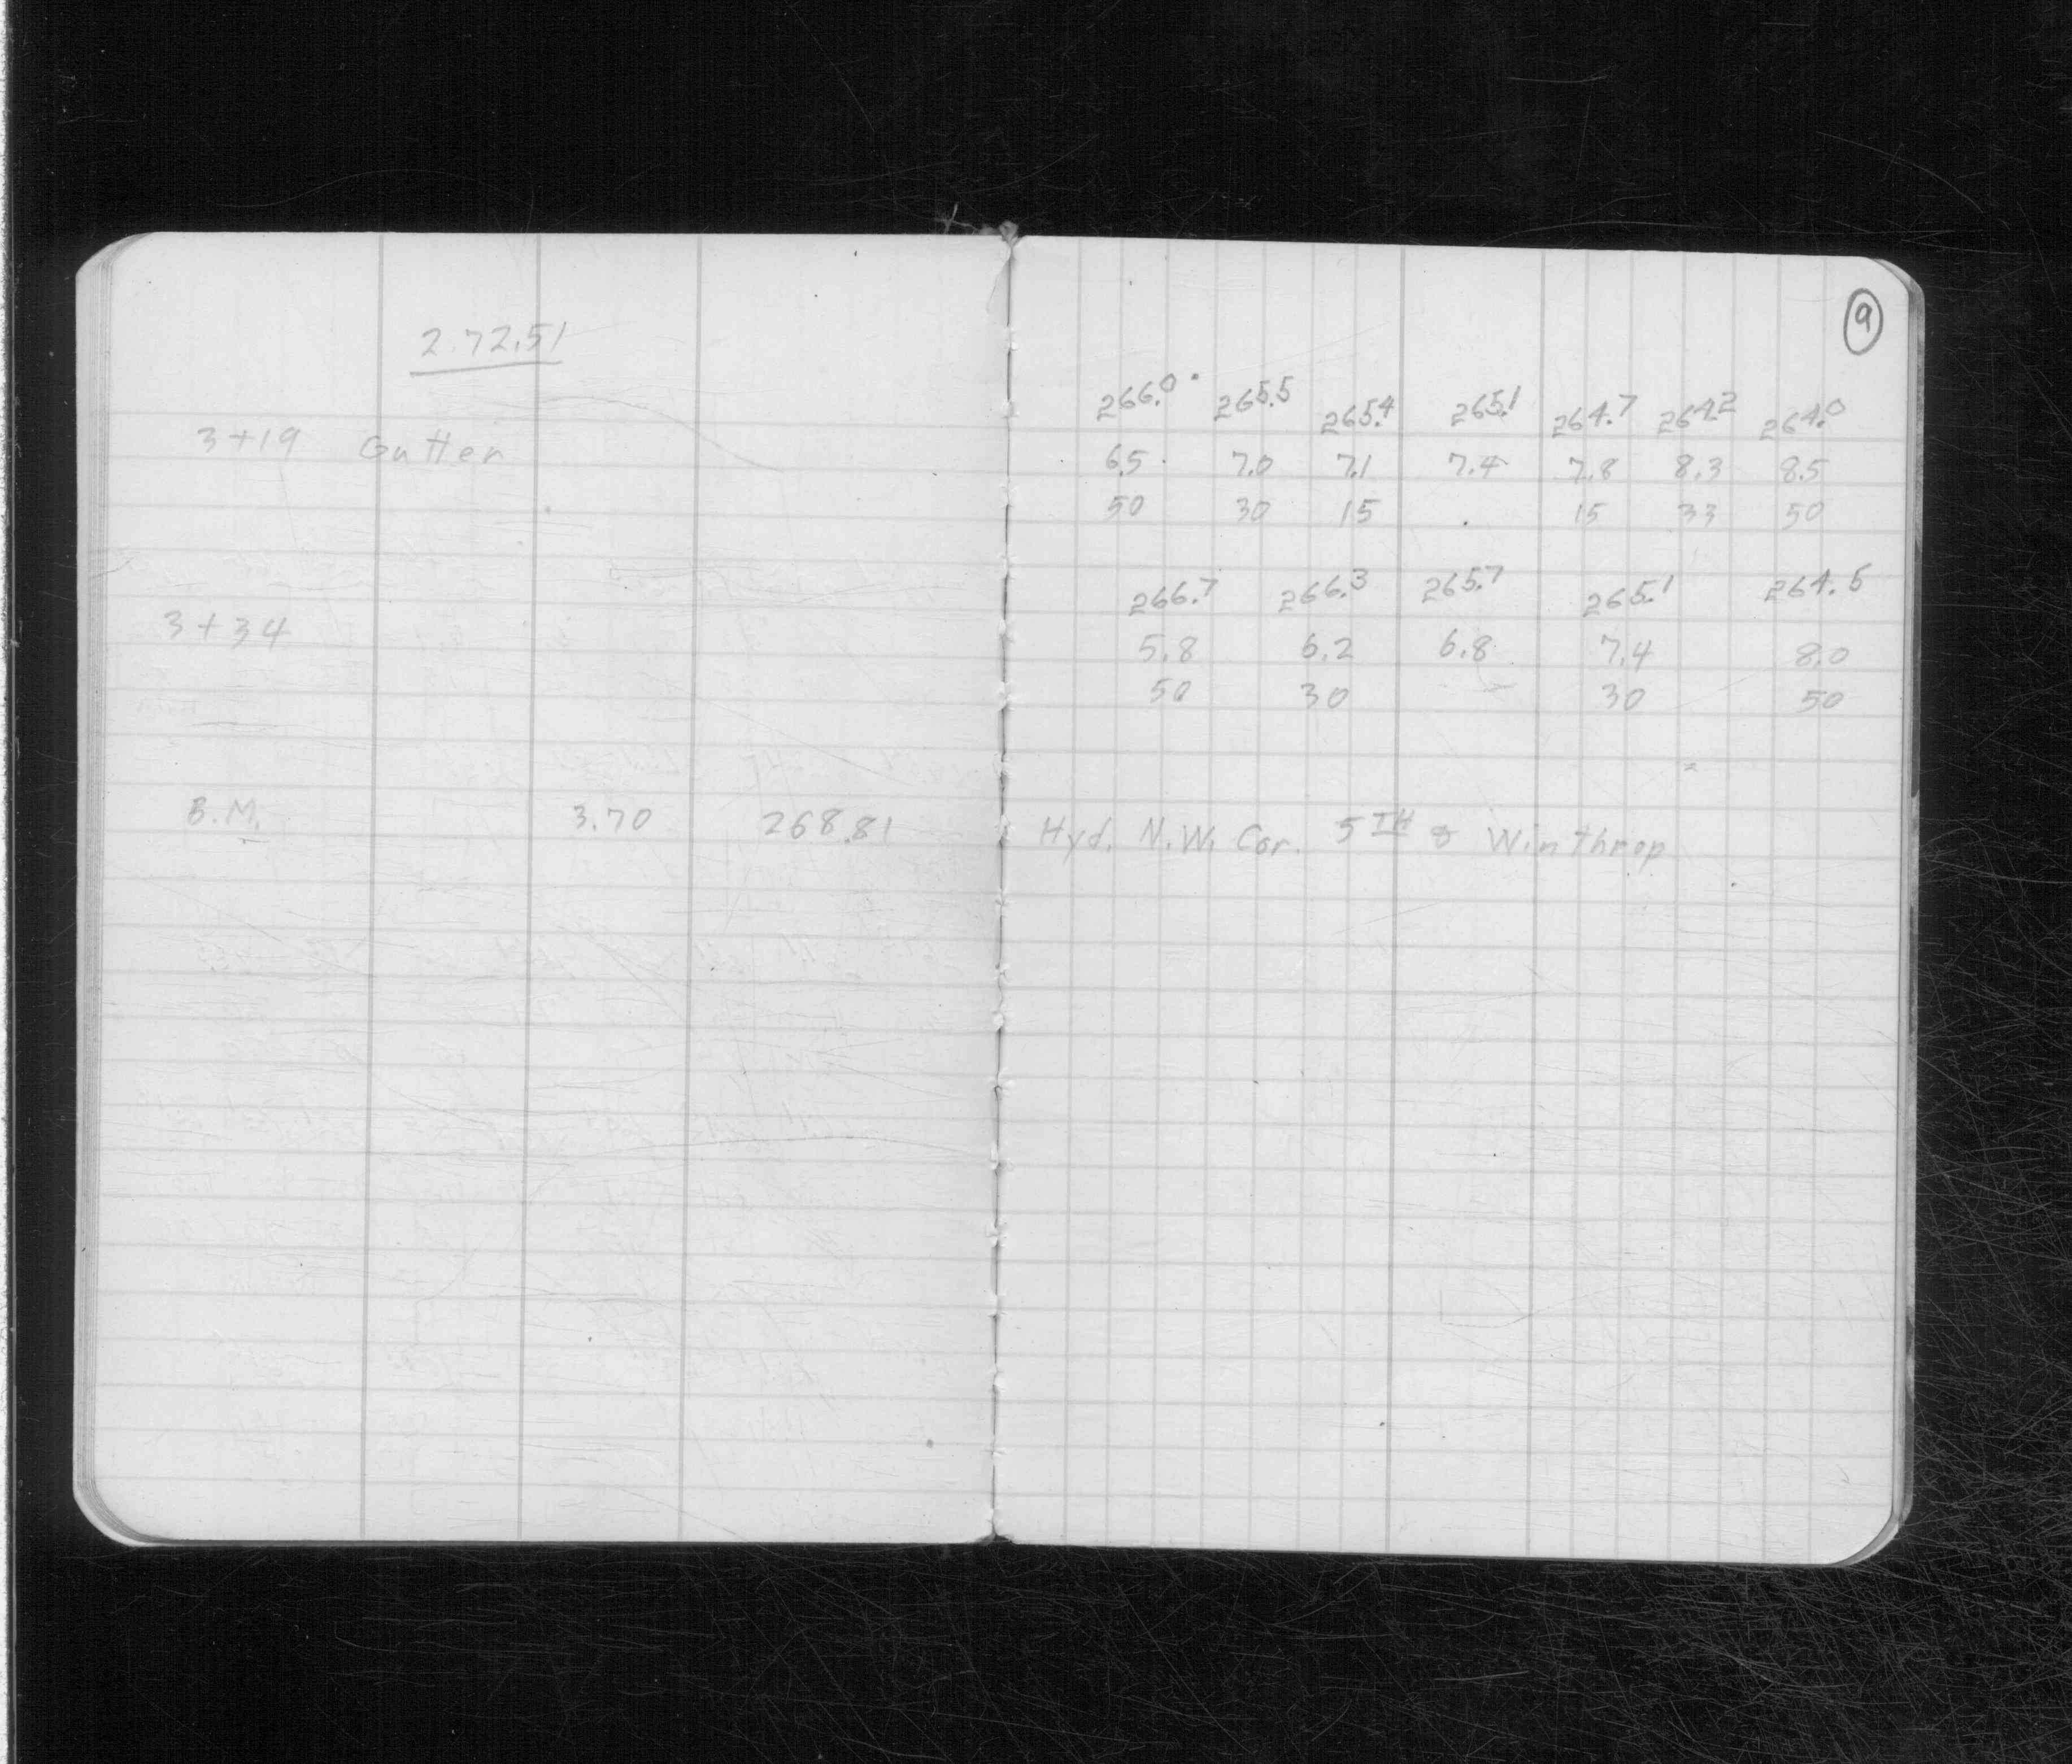 2.72.51
3+19 Gutter
3+34
B.M. 3.70 268.81
9
266.0 265.5 265.4 265.1 264.7 264.2 264.0
6.5 7.0 7.1 7.4 7.8 8.3 8.5
50 30 15 . 15 33 50
266.7 266.3 265.7 265.1 264.5
5.8 6.2 6.8 7.4 8.0
50 30 30 50
Hyd. N.W. Cor. 5TH & Winthrop